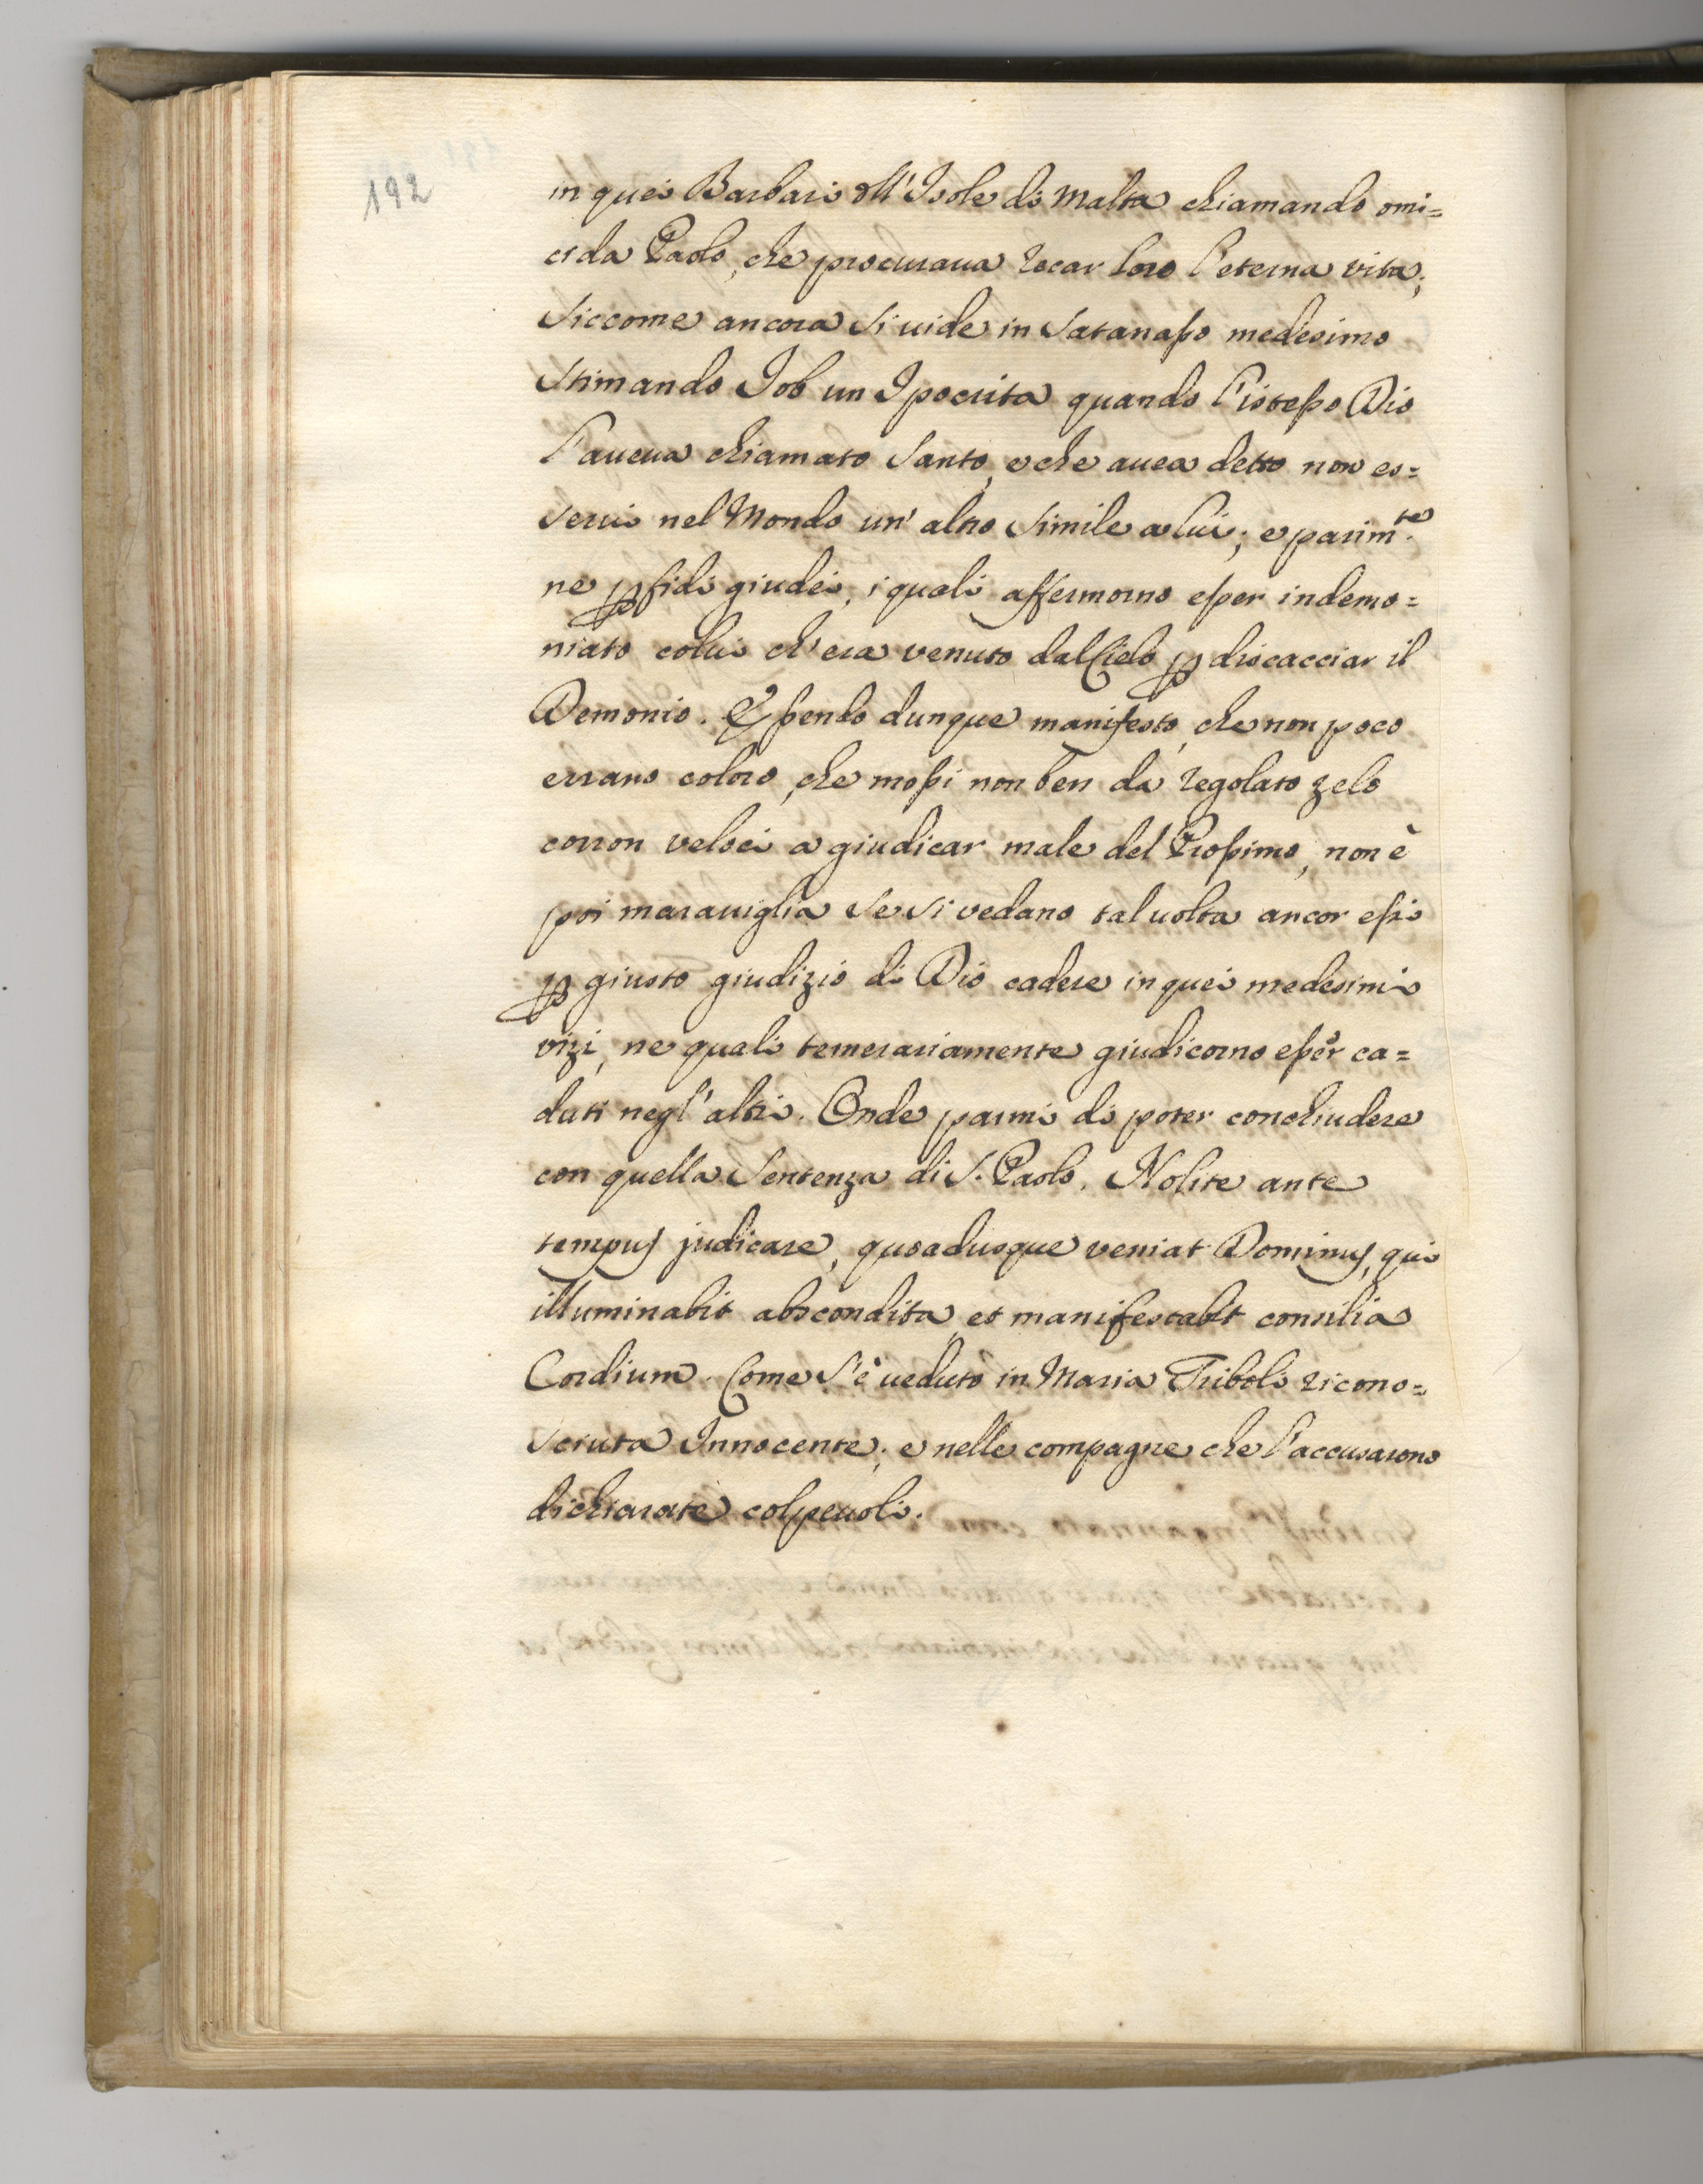 192
in quei Barbari dll'Isole di Malta chiamando omi=
cida Paolo, che procuraua recar loro l'eterna vita;
Siccome ancora Si uide in Satanaßo medesimo
Stimando Job un Ipocrita quando l'isteßo Dio
l'aueua chiamato Santo, e che auea detto non es=
servi nel Mondo un' altro Simile a lui; e parim.te
ne pfidi giudei, i quali affermorno eßer indemo=
niato colui ch'era venuto dal Cielo p discacciar il
Demonio. Eßendo dunque manifesto, che non poco
errano coloro, che moßi non ben da regolato zelo
corron veloci a giudicar male del Proßimo, non è
poi marauiglia Se Si vedano tal uolta ancor eßi
p giusto giudizio di Dio cadere in quei medesimi
vizi, ne quali temerariamente giudicorno eßer ca=
duti negl'altri. Onde parmi di poter conchiudere
con quella Sentenza di S. Paolo. Nolite ante
tempus judicare, quoadusque veniat Dominus, qui
illuminabit abscondita, et manifestabit consilia
Cordium. Come S'è ueduto in Maria Triboli ricono=
Sciuta Innocente; e nelle compagne che l'accusarono
dichiarate colpeuoli.